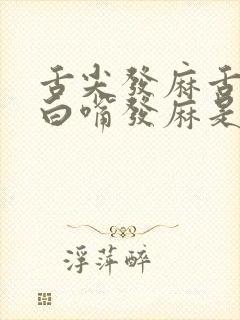 舌尖發麻舌
白嘴發麻是
浮萍醉